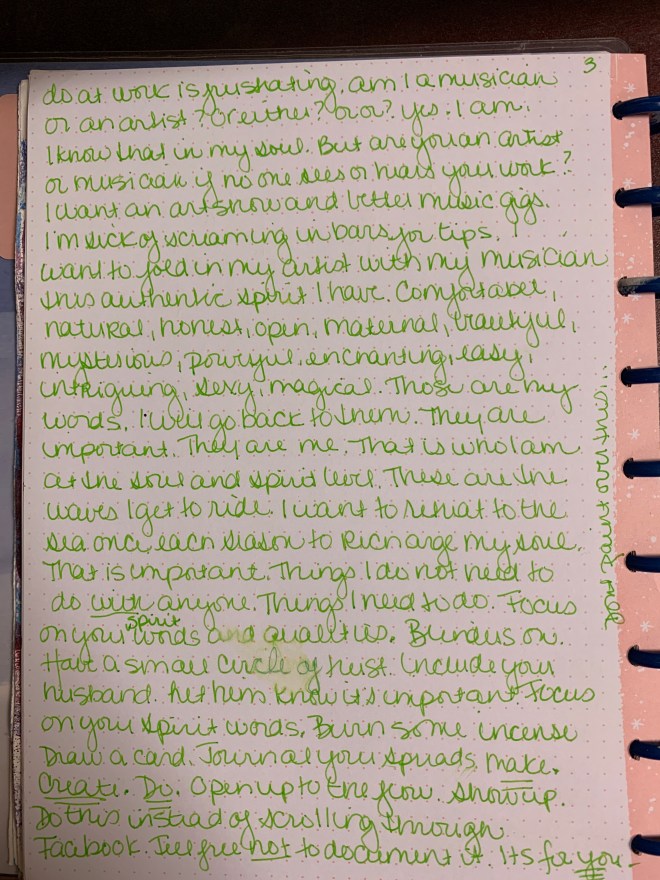 3
do at work is frustrating. am I a musician
or an artist? Or either? or or? yes. I am.
I know that in my soul. But are you an artist
or musician if no one sees or hears your work?
I want an art show and better music gigs.
I'm sick of screaming in bars for tips. I
want to fold in my artist with my musician
this authentic spirit I have. Comfortabel,
natural, honest, open, maternal, beautiful,
mysterious, powerful, enchanting, easy,
intriguing, sexy, magical. Those are my
words. I will go back to them. They are
important. They are me. That is who I am
at the soul and spirit level. These are the
waves I get to ride. I want to retreat to the
sea once each season to Recharge my soul.
That is important. Things I do not need to
do with anyone. Things I need to do. Focus
on your spirit words and qualities. Blinders on.
Have a small circle of trust. Include your
husband. Let them know it's important. Focus
on your spirit words. Burn some incense
Draw a card. Journal your spreads make.
Create. Do. Open up to the flow. Show up.
Do this instead of scrolling through
Facbook. Feel free not to document it. Its for you-
Paint more